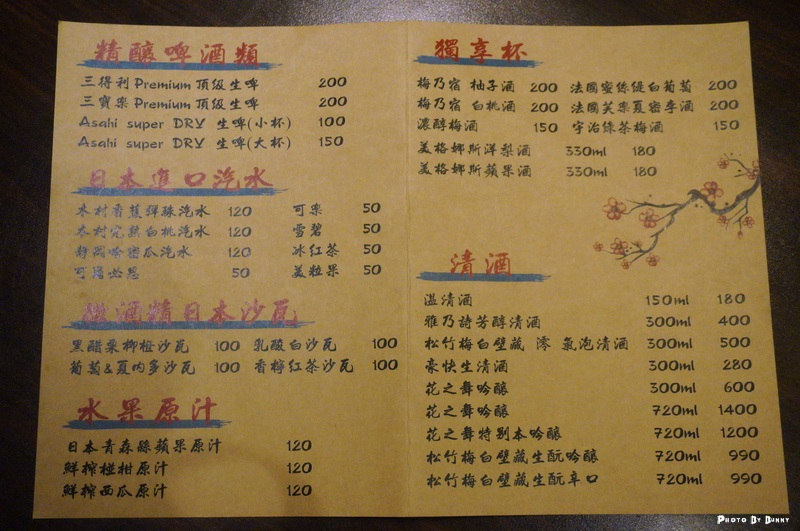 精釀啤酒類
三得利 Premium 頂級生啤 200
三寶樂 Premium 頂級生啤 200
Asahi super DRY 生啤(小杯) 100
Asahi super DRY 生啤(大杯) 150
日本進口汽水
木村香蕉彈珠汽水 120 可樂 50
木村完熟白桃汽水 120 雪碧 50
靜岡哈密瓜汽水 120 冰紅茶 50
可爾必思 50 美粒果 50
微酒精日本沙瓦
黑醋栗柳橙沙瓦 100 乳酸白沙瓦 100
葡萄&夏內多沙瓦 100 香檸紅茶沙瓦 100
水果原汁
日本青森縣蘋果原汁 120
鮮搾椪柑原汁 120
鮮搾西瓜原汁 120
獨享杯
梅乃宿 柚子酒 200 法國蜜絲緹白葡萄 200
梅乃宿 白桃酒 200 法國芙樂夏密李酒 200
濃醇梅酒 150 宇治綠茶梅酒 150
美格娜斯洋梨酒 330ml 180
美格娜斯蘋果酒 330ml 180
清酒
溫清酒 150ml 180
雅乃詩芳醇清酒 300ml 400
松竹梅白壁藏 澪 氣泡清酒 300ml 500
豪快生清酒 300ml 280
花之舞吟釀 300ml 600
花之舞吟釀 720ml 1400
花之舞特別本吟釀 720ml 1200
松竹梅白壁藏生酛吟釀 720ml 990
松竹梅白壁藏生酛辛口 720ml 990
PHOTO BY DUNNY